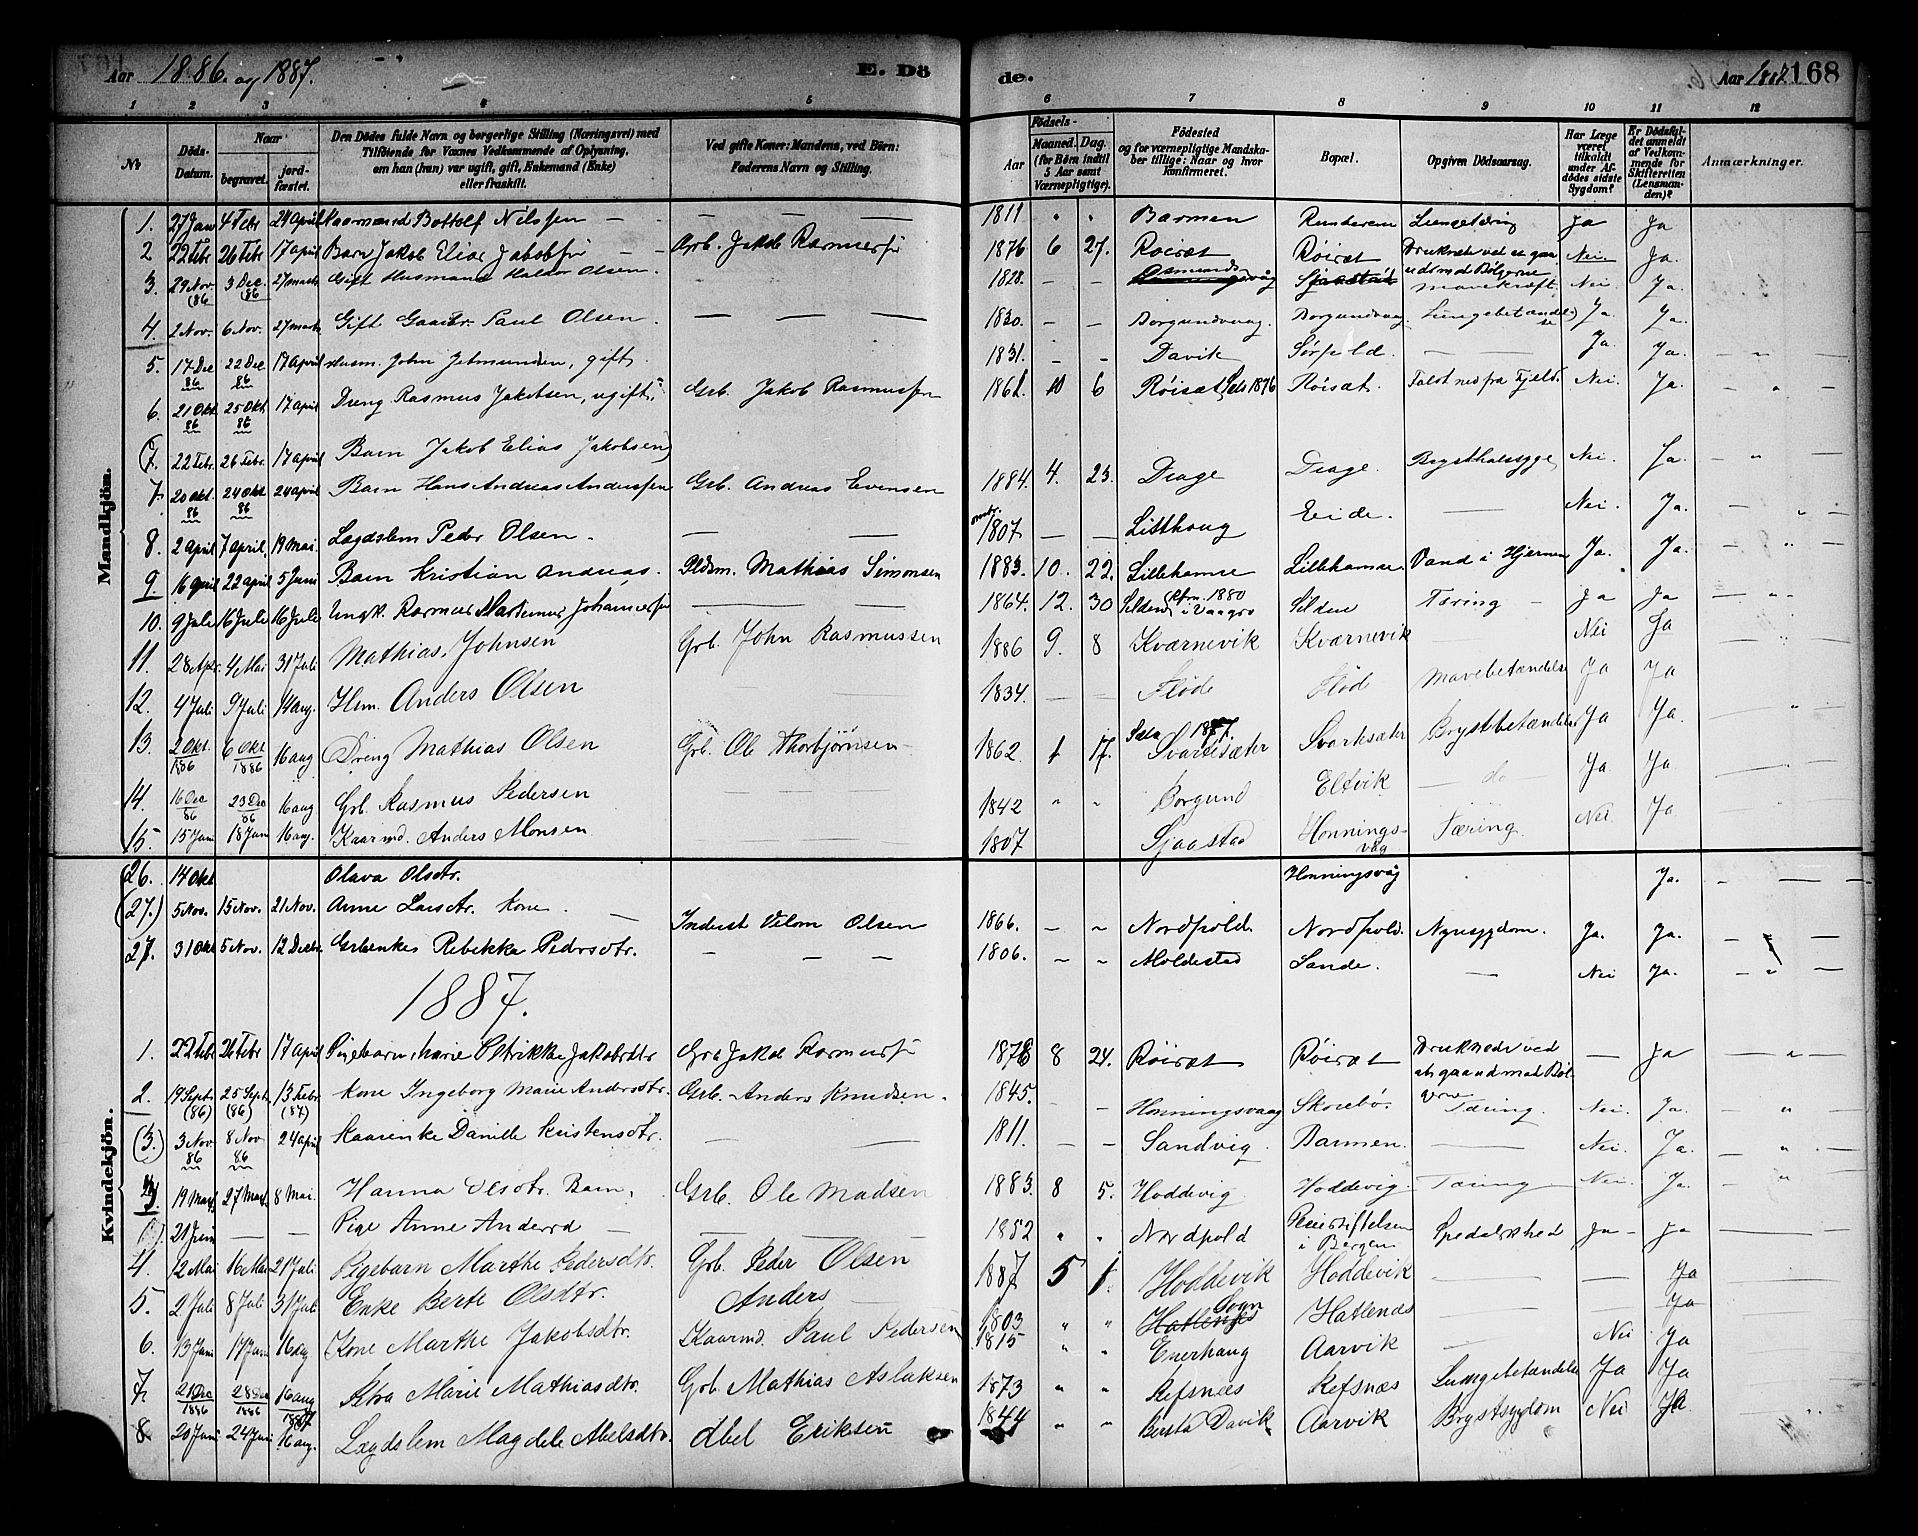 Aar 1886 og 1887. E. Dö
de. Aar 1887 168
1 2 3 4 5 6 7 8 9 10 11 12
No Döds-Datum. Naar begravet. jordfæstet. Den Dödes fulde Navn og borgerlige Stilling (Næringsvei) med Tilföiende for Voxnes Vedkommende af Oplysning, om han (hun) var ugift, gift, Enkemand (Enke) eller fraskilt. Ved gifte Koner: Mandens, ved Börn: Faderens Navn og Stilling. Födsels- Aar Maaned. Dag. (for Börn indtil 5 Aar samt Værnepligtige). Födested og for værnepligtige Mandskaber tillige: Naar og hvor konfirmeret. Bopæl. Opgiven Dödsaarsag. Har Læge været tilkaldt under Afdödes sidste Sygdom? Er Dödsfaldet anmeldt af Vedkommende for Skifteretten (Lensmanden)? Anmærkninger.
Mandkjön.
1. 27 Jan 4 Febr 24 april Kaarmand Bottolf Nilssen — — — 1811 " " Barmen Runderem Lungetæring Ja Ja
2 22 Febr 26 Febr 17 april Barn Jakob Elias Jakobsen — Grb. Jakob Rasmussen 1876 6 27. Röisæt Röisæt Druknede ved at gaa ud med Bölgerne Nei Ja.
3. 29 Nov. (86 3 Dec. (86 27 marts Gift Husmand Halvor Olsen — 1828. — — Osmundsvåg Sjaastad Mavekræft. Nei. Ja.
4. 2 Nov. 6 Nov. 27 marts Gift Gaarbr. Paul Olsen. — — — 1830. — — Borgundvaag. Borgundvaag. Lungebetændelse Ja. Ja.
5. 17 Dec 86 22 Dec 86 17 april Husm. John Jetmundsen, gift. 1831. — — Davik Sörpold. — — Ja. Ja. — " —
6. 21 Okt. 86 25 Okt 86 17 april Dreng Rasmus Jakobsen, ugift. Grb. Jakob Rasmussen 1861. 10 6 Röisæt, Selö 1876 Röisæt. Faldt ned fra Fjeld. Nei. Ja. — " —
(7. 22 Febr. 26 Febr. 17 april Barn Jakob Elias Jakobsen)
7. 20 Okt. 86 24 Okt 86 24 april Barn Hans Andreas Anderssen Grb. Andreas Evensen 1884. 4. 23. Drage Drage. Brysthalssyge Nei. Ja. — " —
8. 2 April 7 april. 19 mai. Lægdslem Peder Olsen. — — omtr. 1807 — — Litthoug Eide. — Nei. Ja.
9. 16 april 22 april 5 Juni Barn Kristian Andreas. Pldsm. Mathias Simonsen 1883. 10. 22. Lillehamse Lillehamse. Vand i Hjernen Ja. Ja. — " —
10. 9 Juli 16 Juli 16 Juli Ungk. Rasmus Martinus Johannessen — — 1864. 12. 30 Selden (Kfm. 1880 i Vaagsö Selden Tæring — Ja Ja — " —
11. 28 Apr. 4 Mai 31 Juli Mathias Johnsen Grb. John Rasmussen 1886 9. 8 Kvärnevik Kvärnevik Nei Ja
12. 4 Juli 9 Juli 14 aug. Hsm. Anders Olsen 1834. — — Flöde Flöd Mavebetændelse Ja Ja
13. 2 Okt. 1886 6 Okt 1886 16 aug Dreng Mathias Olsen Grb. Ole Thorbjörnsen 1862 1 17. Selö 1877. Svartesæter Svartesæter Brystbetændelse Ja Ja.
14. 16 Dec 86 23 Dec 86 16 aug Grb. Rasmus Pedersen — — — 1842 " " Borgund Eltvik — do — Ja Ja
15. 15 Juni 18 Juni 16 aug. Kaarmd. Anders Monsen 1807 Sjaastad Honningsvåg Tæring. Nei Ja
Kvindekjön.
26. 14 Okt Olava Olsdtr. Honningsvåg Ja. — — —
(27.) 5 Nov. 15 Nov. 21 Nov. Anne Larsdtr. Kone. — Inderst Vilom Olsen 1866. — " Nordpold. Nordpold. Nyresygdom. Ja. Ja. — " —
27. 31 Okt 5 Nov. 12 Decbr. Grbenke Rebekka Pedersdtr. — — — 1806. " " Moldestad Sande. — Nei Ja. — " —
1887.
1. 22 Febr 26 Febr 17 April Pigebarn Marie Petrikke Jakobsdtr Grb Jakob Rasmussen 1878 8 24. Röisæt Röisæt Druknede ved at gaa ud med Bölgerne — Ja — " —
2. 19 Septr (86) 25 Sept. (86) 13 Febr. (87) Kone Ingeborg Marie Andersdtr. Grb. Anders Knudsen. 1845. — — Honningsvaag Skorebö. Tæring. Nei. Ja. — " —
(3.) 3 Nov. 86 8 Nov 86 24 april Kaarenke Danille Kristensdtr. — — 1811. — — Sandvig. Barmen. — Nei. Ja. — " —
3. 19 Mart. 27 Mart. 8 Mai. Hanna Olsdtr. Barn. Grb. Ole Madsen 1883. 8 5. Hoddevig. Hoddevig. Tæring Nei. Ja. — " —
21 Juni — — Pige Anne Andersd — — — 1852 " " Nordpold Pleiestiftelsen i Bergen Spedalskhed Ja — Ja —
4. 12 Mai 16 Mai 21 Juli Pigebarn Marthe Pedersdtr. Grb. Peder Olsen 1887 5 1. Hoddevik Hoddevik — — Ja
5. 2 Juli 8 Juli 31 Juli Enke Berte Olsdtr. Anders — 1803 " " Hatlenæs Sogn Hatlenæs — — Ja
6. 13 Juni 17 Juni 16 aug Kone Marthe Jakobsdtr. Kaarmd. Paul Pedersen 1815 " " Enerhaug Aarvik — Nei Ja
7. 21 Dec 1886 28 Dec 1886 16 aug 1887 Petra Marie Mathiasdtr. Grb. Mathias Aslaksen 1873 " " Refsnæs Refsnæs Lungebetændelse Ja Ja
8. 20 Juni 24 Juni 16 aug. Lægdslem Magdele Abelsdtr. Abel Eriksen 1844 " " Davik Aarvik Brystsygdom Nei Ja